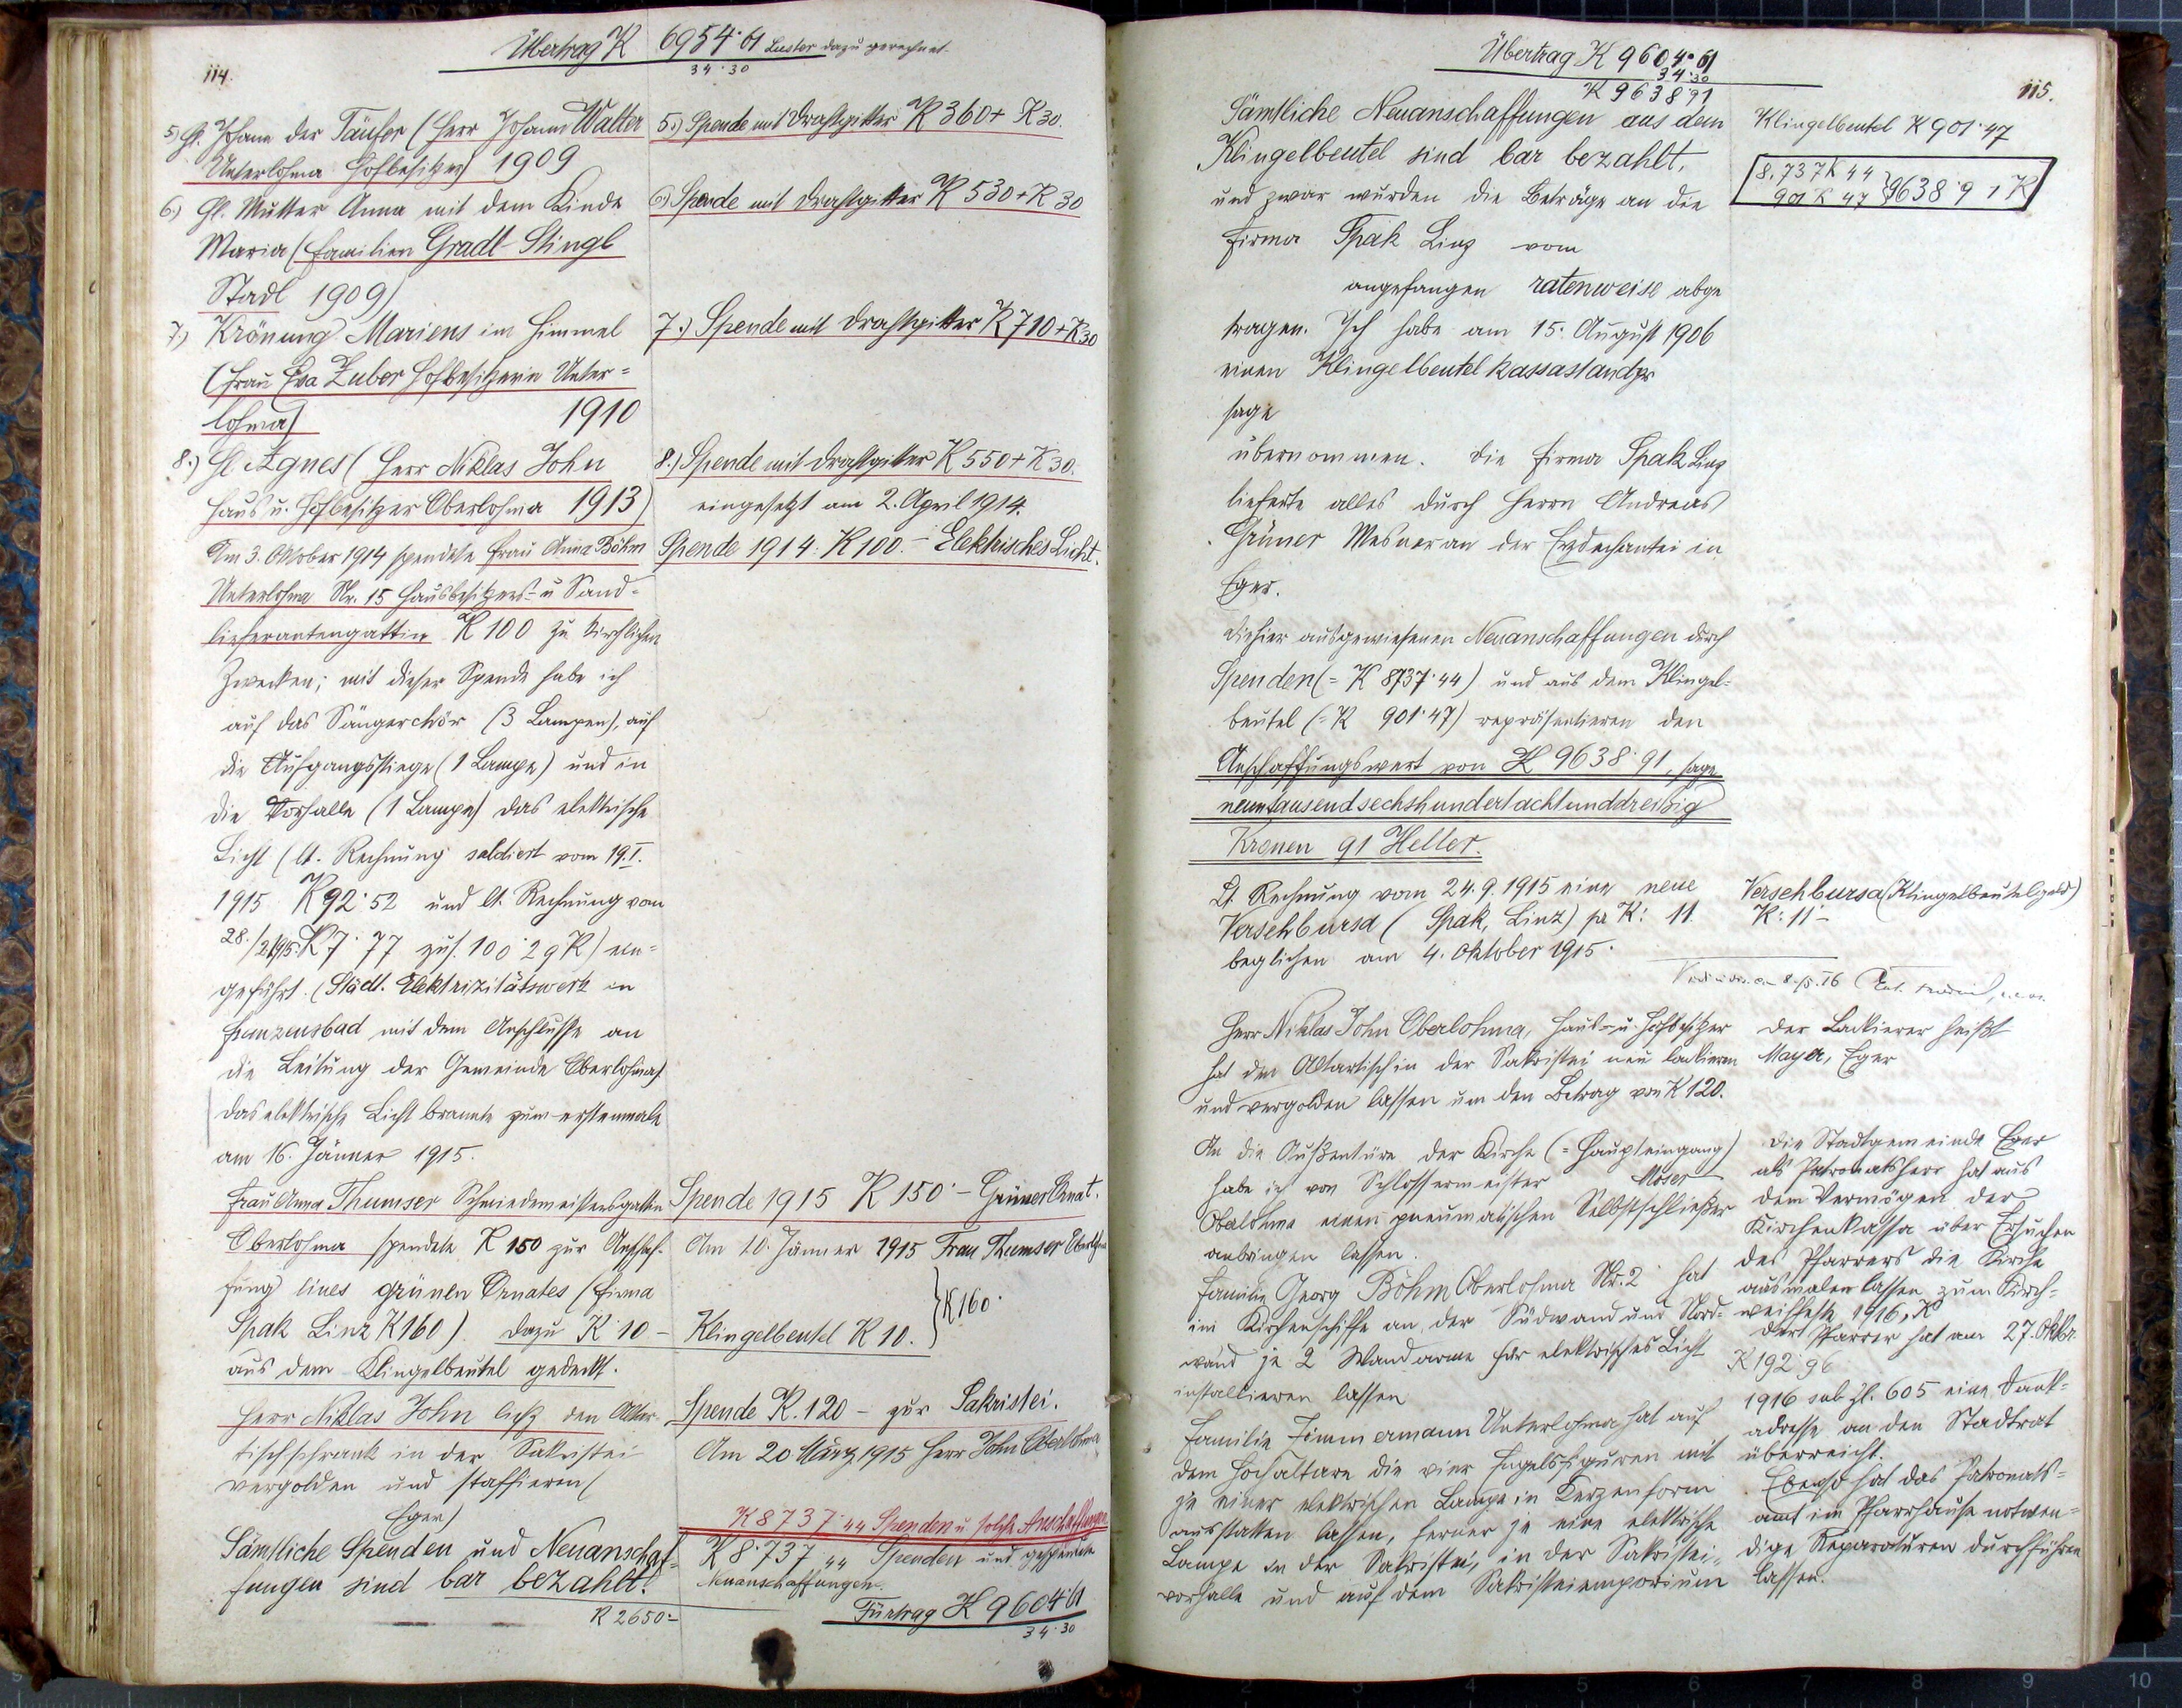 Übertrag K 6954·61 Luster dazu gerechnet.
34·30
114.
5.) Hl. Johann der Täufer (Herr Johann Walter
Unterlohma Hofbesitzer) 1909
6.) Hl. Mutter Anna mit dem Kinde
Maria (Familien Gradl-Stingl
Stadl 1909)
7.) Krönung Mariens im Himmel
(Frau Eva Zuber Hofbesitzerin Unter=
lohma) 1910
8.) Hl. Agnes (Herr Niklas John
Haus u. Hofbesitzer Oberlohma 1913)
Am 3. Oktober 1914 spendete Frau Anna Böhm
Unterlohma Nr. 15 Hausbesitzers- u Sand=
lieferantengattin K 100 zu kirchlichen
Zwecken; mit dieser Spende habe ich
auf das Sängerchor (3 Lampen), auf
die Aufgangsstiege (1 Lampe) und in
die Vorhalle (1 Lampe) das elektrische
Licht (lt. Rechnung saldiert vom 19.I.
1915 K 92·52 und lt. Rechnung vom
28./2.1915. K 7·77 zus. 100·29 K) ein=
geführt. (Städt. Elektrizitätswerk in
Franzensbad mit dem Anschlusse an
die Leitung der Gemeinde Oberlohma)
das elektrische Licht brannte zum erstenmale
am 16. Jänner 1915.
Frau Anna Thumser Schmiedemeistersgattin
Oberlohma spendete K 150 zur Anschaf-
fung eines grünen Ornates (Firma
Spak Linz K 160). dazu K 10 –
aus dem Klingelbeutel gedeckt.
Herr Niklas John ließ den Altar-
tischschrank in der Sakristei
vergolden und staffieren (
Eger)
Sämtliche Spenden und Neuanschaf=
fungen sind bar bezahlt!
K 2650=
5.) Spende mit Drahtgitter K 360 + K 30.
6.) Spende mit Drahtgitter K 530 + K 30
7.) Spende mit Drahtgitter K 710 + K 30
8.) Spende mit Drahtgitter K 550 + K 30.
eingesetzt am 2. April 1914.
Spende 1914: K 100.– Elektrisches Licht.
Spende 1915 K 150·– Grüner Ornat.
Am 10. Jänner 1915 Frau Thumser Oberlohma
Klingelbeutel K 10. } K 160·
Spende K. 120 – zur Sakristei.
Am 20 März 1915 Herr John Oberlohma
K 8737·44 Spenden u. solche Anschaffungen
K 8·737·44 Spenden und gespendete
Neuanschaffungen.
Fürtrag K 9604·61
34·30
Übertrag K 9604·61
34·30
K 9638·91
115.
Sämtliche Neuanschaffungen aus dem
Klingelbeutel sind bar bezahlt,
und zwar wurden die Beträge an die
Firma Spak Linz vom
angefangen ratenweise abge
tragen. Ich habe am 15. August 1906
einen Klingelbeutelkassastand pr
sage
übernommen. Die Firma Spak Linz
lieferte alles durch Herrn Andreas
Grüner Mesner an der Erzdechantei in
Eger.
Die hier ausgewiesenen Neuanschaffungen durch
Spenden (= K 8737·44) und aus dem Klingel=
beutel (= K 901·47) repräsentieren den
Anschaffungswert von K 9638·91, sage
neuntausendsechshundertachtunddreißig
Kronen 91 Heller.
Lt. Rechnung vom 24.9.1915 eine neue
Versehbursa (Spak, Linz) pr K: 11.
beglichen am 4. Oktober 1915.
Herr Niklas John Oberlohma, Haus- u. Hofbesitzer
hat den Altartisch in der Sakristei neu lackieren
und vergolden lassen um den Betrag von K 120.
An die Außentüre der Kirche (= Haupteingang)
habe ich von Schlossermeister Moser
Oberlohma einen pneumatischen Selbstschließer
anbringen lassen.
Familie Georg Böhm Oberlohma Nr. 2 hat
im Kirchenschiffe an der Südwand und Nord=
wand je 2 Wandarme für elektrisches Licht
installieren lassen
Familie Zimmermann Unterlohma hat auf
dem Hochaltare die vier Engelsfiguren mit
je einer elektrischen Lampe in Kerzenform
ausstatten lassen, ferner je eine elektrische
Lampe in der Sakristei, in der Sakristei=
vorhalle und auf dem Sakristeiemporium
Klingelbeutel K 901·47
8.737 K 44
901 K 47 } 9638·91 K
Versehbursa (Klingelbeutelgeld)
K: 11·–
Der Lackierer heißt
Mayer, Eger
Die Stadtgemeinde Eger
als Patronatsherr hat aus
dem Vermögen der
Kirchenkassa über Ersuchen
des Pfarrers die Kirche
ausmalen lassen zum Kirch=
weihfeste 1916, K
Der Pfarrer hat am 27. Oktbr.
K 192·96
1916 sub Zl. 605 eine Dank=
adresse an den Stadtrat
überreicht.
Ebenso hat das Patronats=
amt im Pfarrhause notwen=
dige Reparaturen durchführen
lassen.